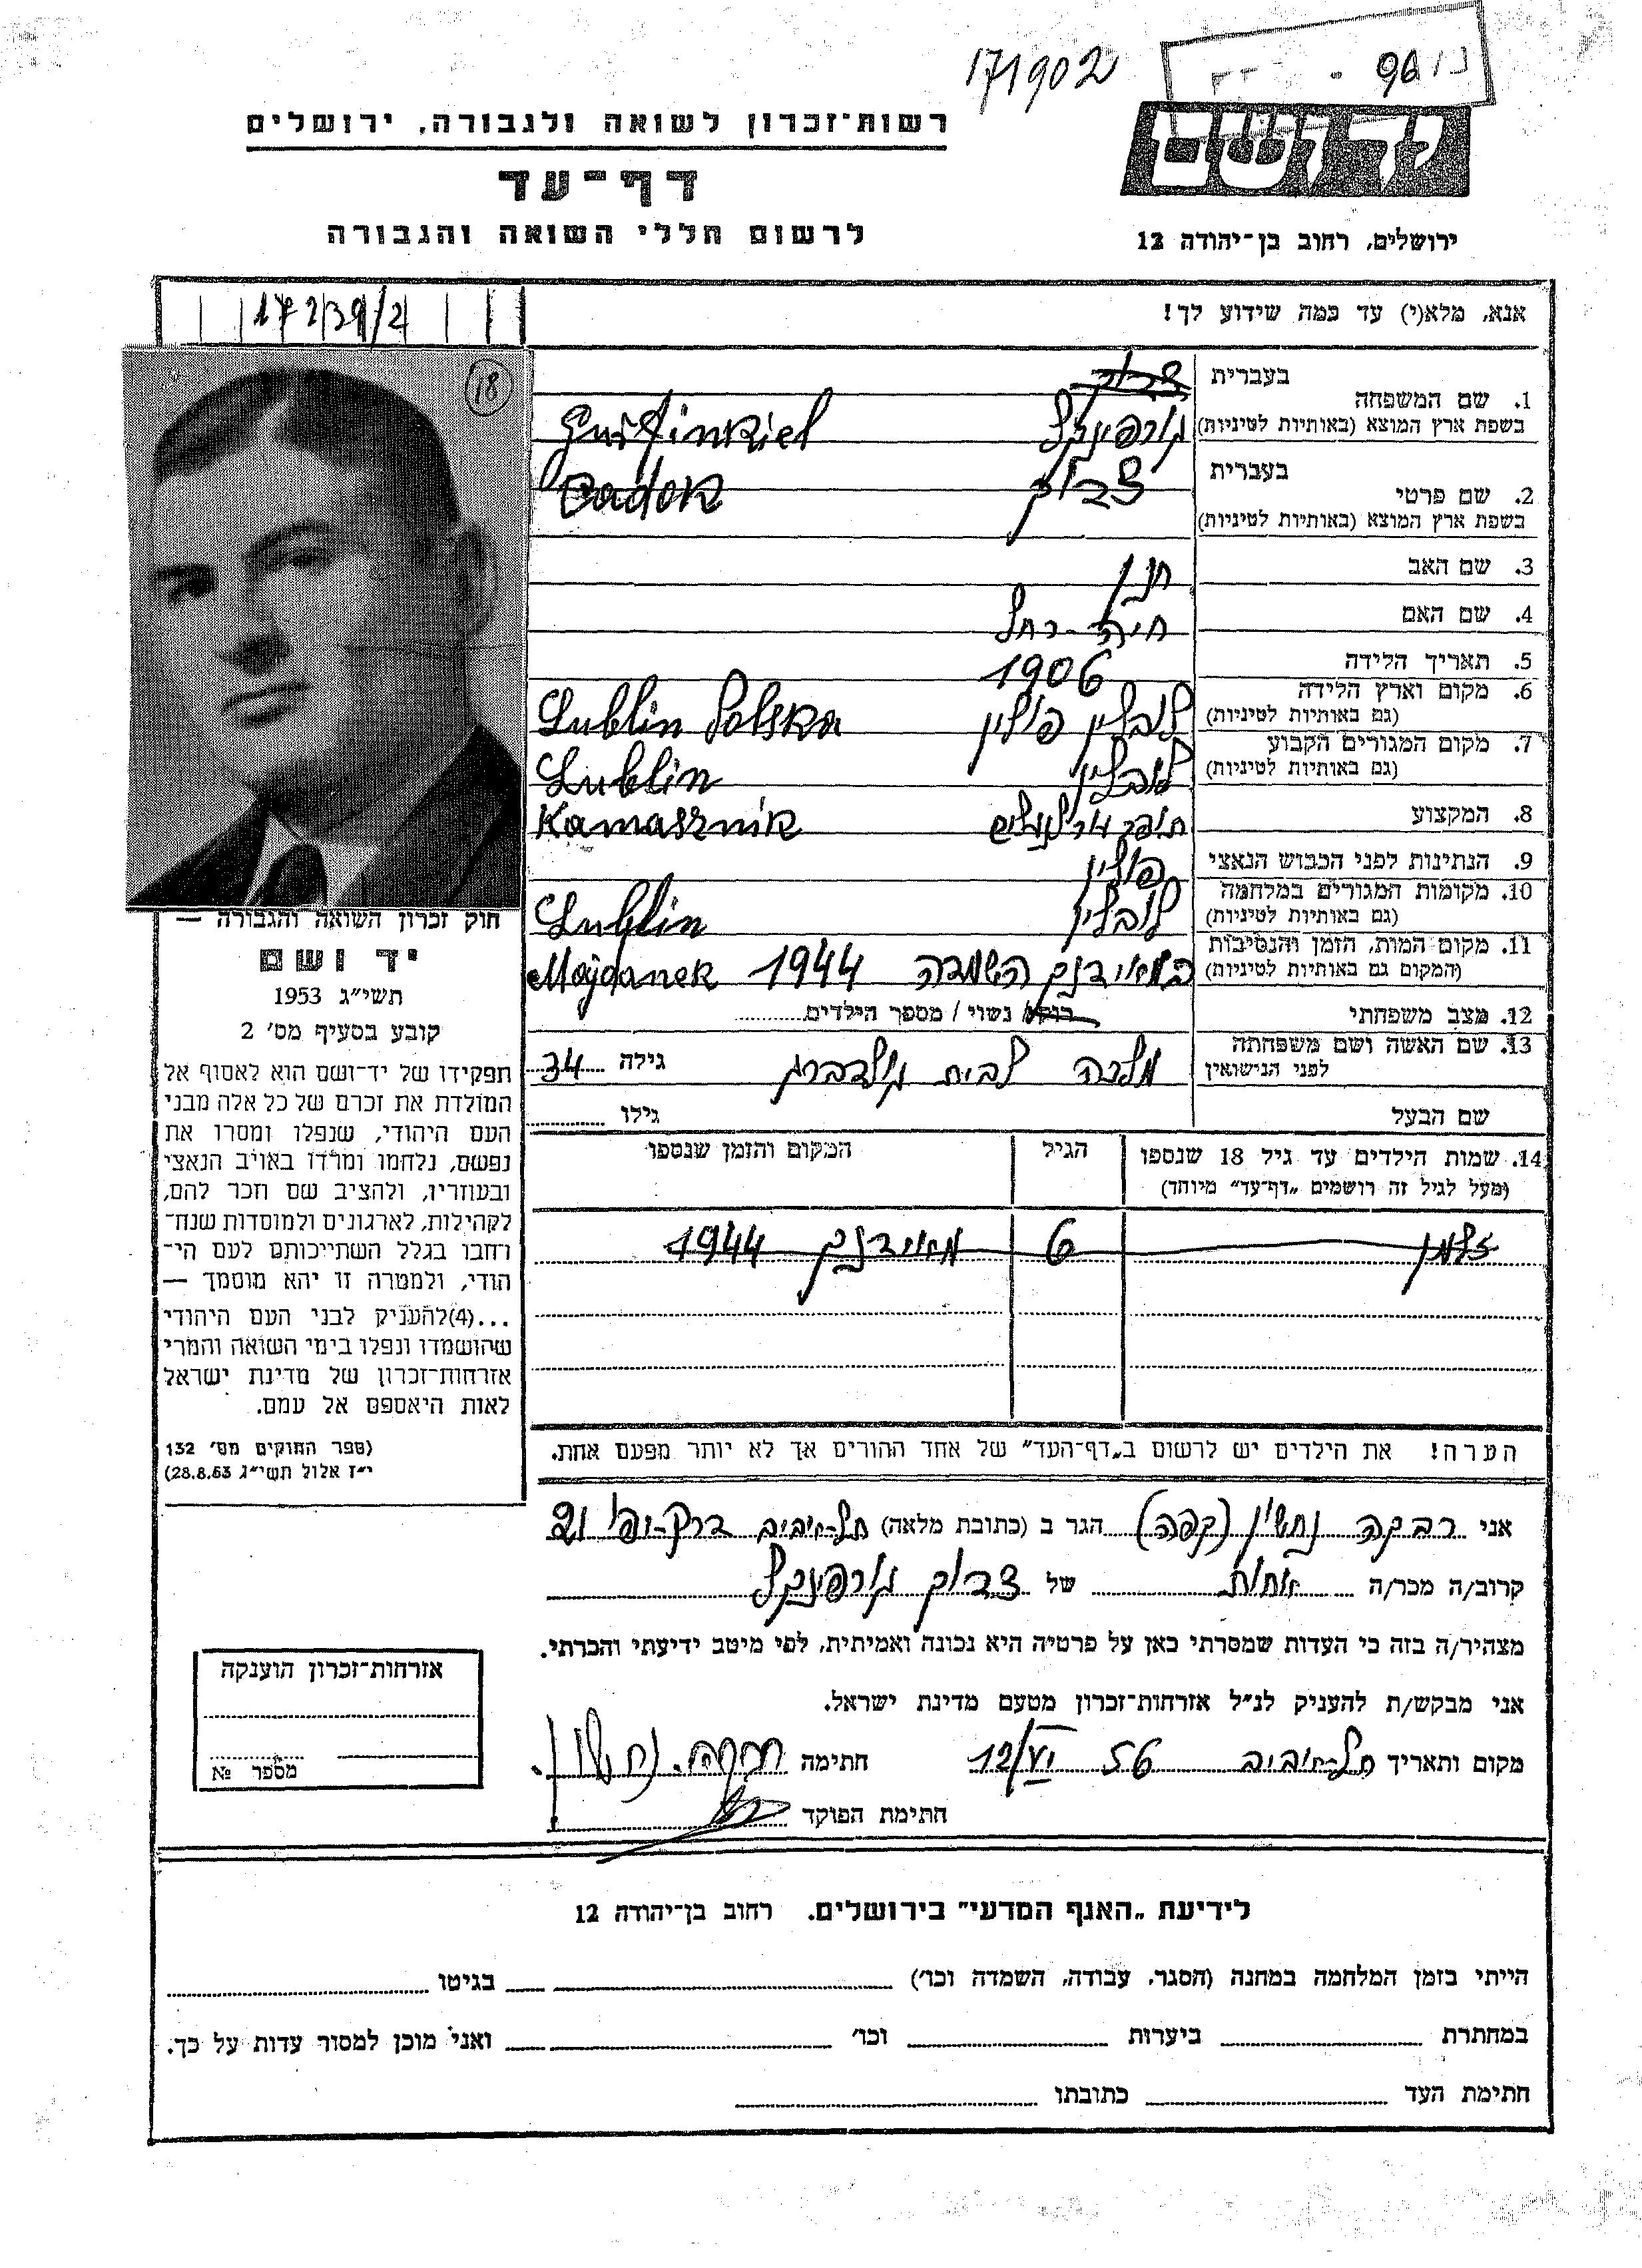 171902
רשות־זכרון לשואה ולגבורה, ירושלים
דף־עד
לרשום חללי השואה והגבורה
יד ושם
ירושלים, רחוב בן־יהודה 12
אנא, מלא(י) עד כמה שידוע לך!
18
1. שם המשפחה בעברית צדוק
בשפת ארץ המוצא (באותיות לטיניות) גורפינקל Gurfinkiel
2. שם פרטי בעברית צדוק Cadok
בשפת ארץ המוצא (באותיות לטיניות)
3. שם האב חנן
4. שם האם חיה-רחל
5. תאריך הלידה 1906
6. מקום וארץ הלידה לובלין פולין Lublin Polska
(גם באותיות לטיניות)
7. מקום המגורים הקבוע לובלין Lublin
(גם באותיות לטיניות)
8. המקצוע תופר Kamasznik
9. הנתינות לפני הכבוש הנאצי פולין
10. מקומות המגורים במלחמה לובלין Lublin
(גם באותיות לטיניות)
11. מקום המות, הזמן והנסיבות במאידנק השמדה 1944 Majdanek
(המקום גם באותיות לטיניות)
12. מצב משפחתי רווק / נשוי / מספר הילדים
13. שם האשה ושם משפחתה לפני הנישואין מלכה לבית גולדברג גילה 34
שם הבעל גילו
14. שמות הילדים עד גיל 18 שנספו הגיל המקום והזמן שנספו
(מעל לגיל זה רושמים „דף־עד” מיוחד)
זלמן 6 מאידנק 1944
הערה! את הילדים יש לרשום ב„דף־העד” של אחד ההורים אך לא יותר מפעם אחת.
חוק זכרון השואה והגבורה —
יד ושם
תשי״ג 1953
קובע בסעיף מס׳ 2
תפקידו של יד־ושם הוא לאסוף אל
המולדת את זכרם של כל אלה מבני
העם היהודי, שנפלו ומסרו את
נפשם, נלחמו ומרדו באויב הנאצי
ובעוזריו, ולהציב שם וזכר להם,
לקהילות, לארגונים ולמוסדות שנח־
רחבו בגלל השתייכותם לעם הי־
הודי, ולמטרה זו יהא מוסמך —
...(4)להעניק לבני העם היהודי
שהושמדו ונפלו בימי השואה והמרי
אזרחות־זכרון של מדינת ישראל
לאות היאספם אל עמם.
(ספר החוקים מס׳ 132
י״ז אלול תשי״ג 28.8.53)
אני רבקה נחשון (קפה) הגר ב (כתובת מלאה) תל-אביב דרק-יפו 21
קרוב/ה מכר/ה אחות של צדוק גורפינקל
מצהיר/ה בזה כי העדות שמסרתי כאן על פרטיה היא נכונה ואמיתית, לפי מיטב ידיעתי והכרתי.
אני מבקש/ת להעניק לנ״ל אזרחות־זכרון מטעם מדינת ישראל.
מקום ותאריך תל-אביב 56 12/VI חתימה
חתימת הפוקד
אזרחות־זכרון הוענקה
מספר №
לידיעת „האנף המדעי” בירושלים. רחוב בן־יהודה 12
הייתי בזמן המלחמה במחנה (הסגר, עבודה, השמדה וכו׳) בגיטו
במחתרת ביערות וכו׳ ואני מוכן למסור עדות על כך.
חתימת העד כתובתו